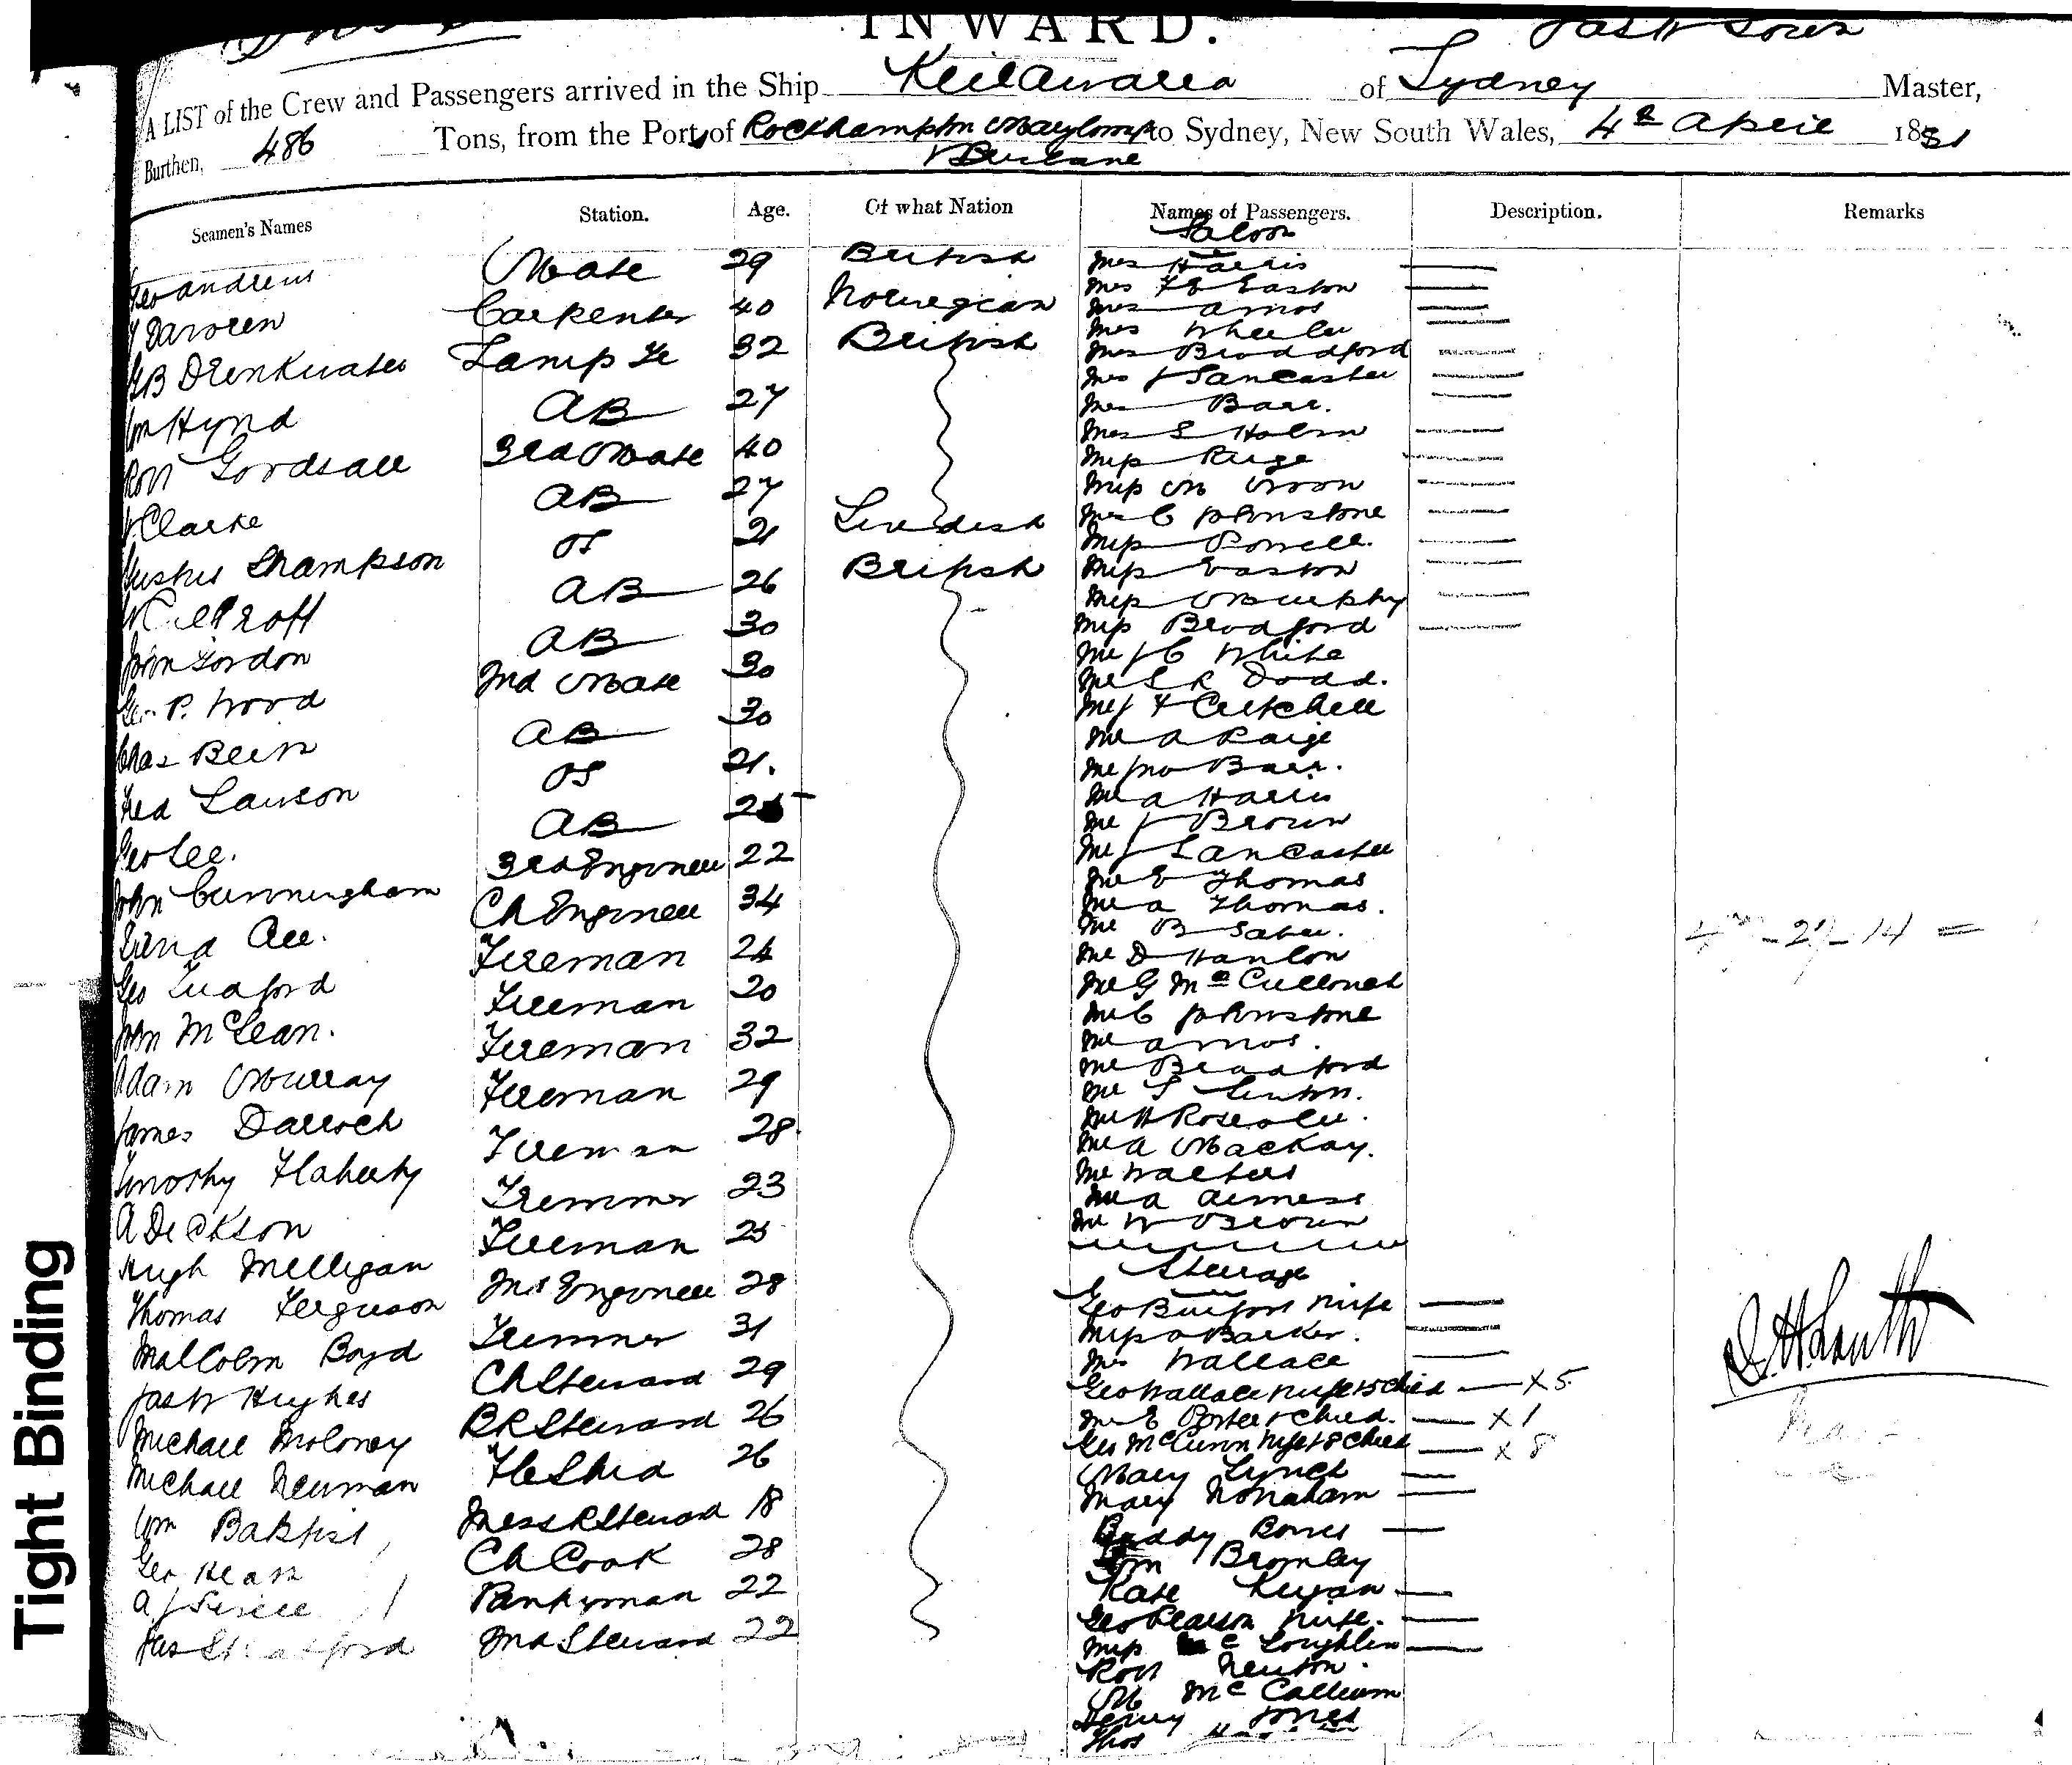 INWARD.
A LIST of the Crew and Passengers arrived in the Ship Keilawarra of Sydney Master,
Burthen, 486 Tons, from the Port of Rockhampton Maryboro to Sydney, New South Wales, 4th April 1881
& Brisbane
Seamen's Names Station. Age. Of what Nation Names of Passengers. Description. Remarks
Saloon
Geo Andrews Mate 29 British Mrs Harris
Mrs Easton
Carpenter 40 Norwegian Mrs Amos
Mrs Wheeler
Drinkwater Lamp Tr 32 British Mrs Bradford
Mrs J Lancaster
Wm Hynd AB 27 Mrs Barr.
Mrs S Holm
Robt Goodsall 3rd Mate 40 Miss Paige
Clarke AB 27 Miss M Moon
Mrs C Johnstone
Thampson OS 21 Swedish Miss Powell.
AB 26 British Miss Easton
Miss Murphy
John Gordon AB 30 Miss Bradford
Mr J C White
Geo P. Wood 2nd Mate 30 Mr S R Dodd.
Chas Bein AB 30 Mr J F Critchell
Mr A Paige
Fred Lawson OS 21. Mr Jno Barr.
Mr A Harris
Geo Lee. AB 25 Mr J Brown
John Cunningham 3rd Engineer 22 Mr J Lancaster
Mr E Thomas
David Orr. Ch Engineer 34 Mr A Thomas.
Mr B Saber.
Geo Tudford Fireman 24 Mr D Hanlon
John McLean. Fireman 20 Mr G McCulloch
Mr C Johnstone
Adam Murray Fireman 32 Mr Amos.
Mr Bradford
James Darroch Fireman 29 Mr S Linton.
Timothy Flaherty Fireman 28 Mr H
Mr A Mackay.
A Dickson Trimmer 23 Mr Walters
Mr A
Hugh Milligan Fireman 25 Mr W Brown
Steerage
Thomas Ferguson 2nd Engineer 28 Geo & wife
Malcolm Boyd Trimmer 31 Miss Barker.
Mrs Wallace
Jas W Hughes Ch Steward 29 Geo Wallace wife & 5 child x 5
Michael Moloney BR Steward 26 Mrs E Porter & Child. x 1
Michael Newman F Cb Stwd 26 Geo McCunn wife & 8 child x 8
Mary Lynch
Wm Baptist Mess R Steward 18 Mary Monaham
Geo Kean Ch Cook 28 Biddy
Wm Bromley
A J Pantryman 22 Kate Kegan
Jas Stratford 2nd Steward 22 Geo Pearson wife.
Miss McLoughlin
Robt Newton.
M McCallum
Henry Jones
Thos
Tight Binding